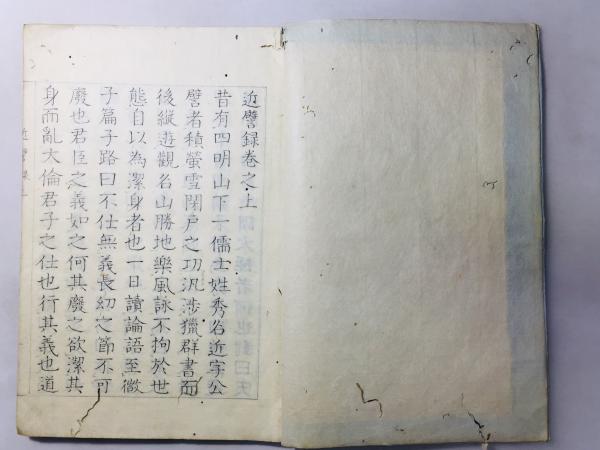 近譬録卷之上
昔有四明山下一儒士姓秀名近字公
譬者積螢雪閉戸之功汎渉獵群書而
後縦遊觀名山勝地樂風詠不拘於世
態自以為潔身者也一日讀論語至微
子篇子路曰不仕無義長幼之節不可
廢也君臣之義如之何其廢之欲潔其
身而亂大倫君子之仕也行其義也道
近譬録